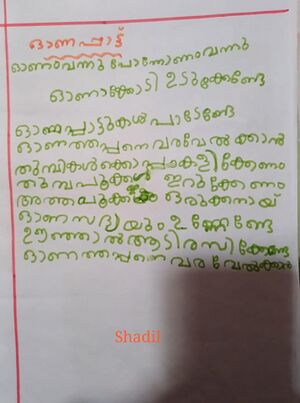 ഓണപ്പാട്ട്
ഓണംവന്നു പോന്നോണംവന്നു
ഓണാക്കോടി ഉടുക്കേണ്ടേ
ഓണപ്പാട്ടുകൾ പാടേണ്ടേ
ഓണത്തപ്പനെ വരവേൽക്കാൻ
തുമ്പികൾക്കൊപ്പം കളിക്കേണം
തുമ്പപൂക്കൾ ഇറുക്കേണം
അത്തപൂക്കളം ഒരുക്കനായ്
ഓണസദ്യയും ഉണ്ണേണ്ടേ
ഊഞ്ഞാൽആടിരസിക്കേണ്ടേ
ഓണത്തപ്പനെ വരവേൽക്കാൻ
Shadil